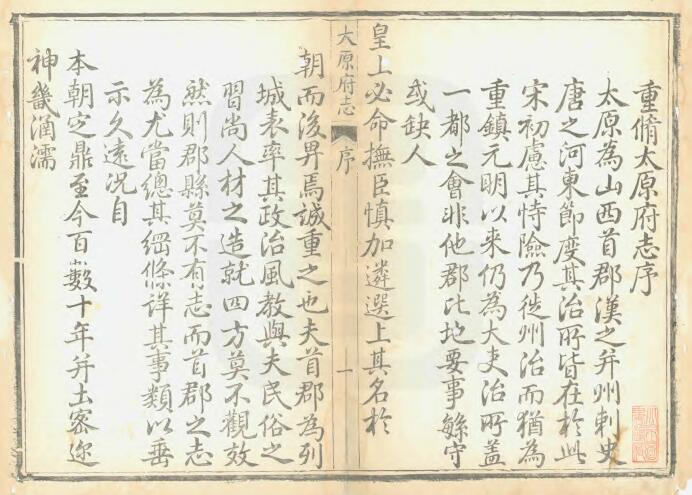 重脩太原府志序
太原為山西首郡漢之并州刺史
唐之河東節度其治所皆在於此
宋初慮其恃險乃徙州治而猶為
重鎮元明以來仍為大吏治所盖
一都之會非他郡比地要事緐守
或缺人
皇上必命撫臣慎加遴選上其名於
大原府志
序
一
朝而後畀焉誠重之也夫首郡為列
城表率其政治風教與夫民俗之
習尚人材之造就四方莫不觀效
然則郡縣莫不有志而首郡之志
為尤當總其綱條詳其事類以垂
示久遠況自
本朝定鼎至今百數十年并土密邇
神畿涵濡